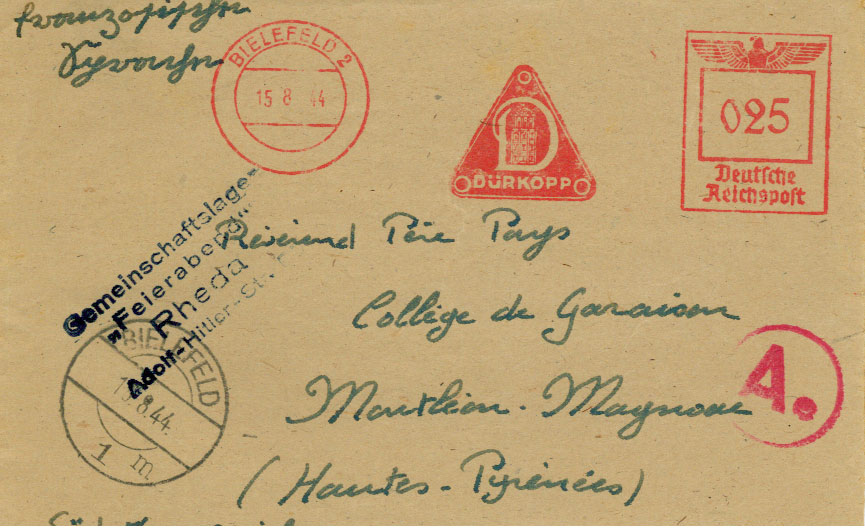 französischer
Sprache
BIELEFELD 2
15 8 44
DÜRKOPP
025
Deutsche
Reichspost
Gemeinschaftslager
„Feierabend“
Rheda
Adolf-Hitler-Str.
Révérend Père Pays
Collège de Garaison
Montléon-Magnoac
(Hautes-Pyrénées)
BIELEFELD
15.8.44.
1 m
A.